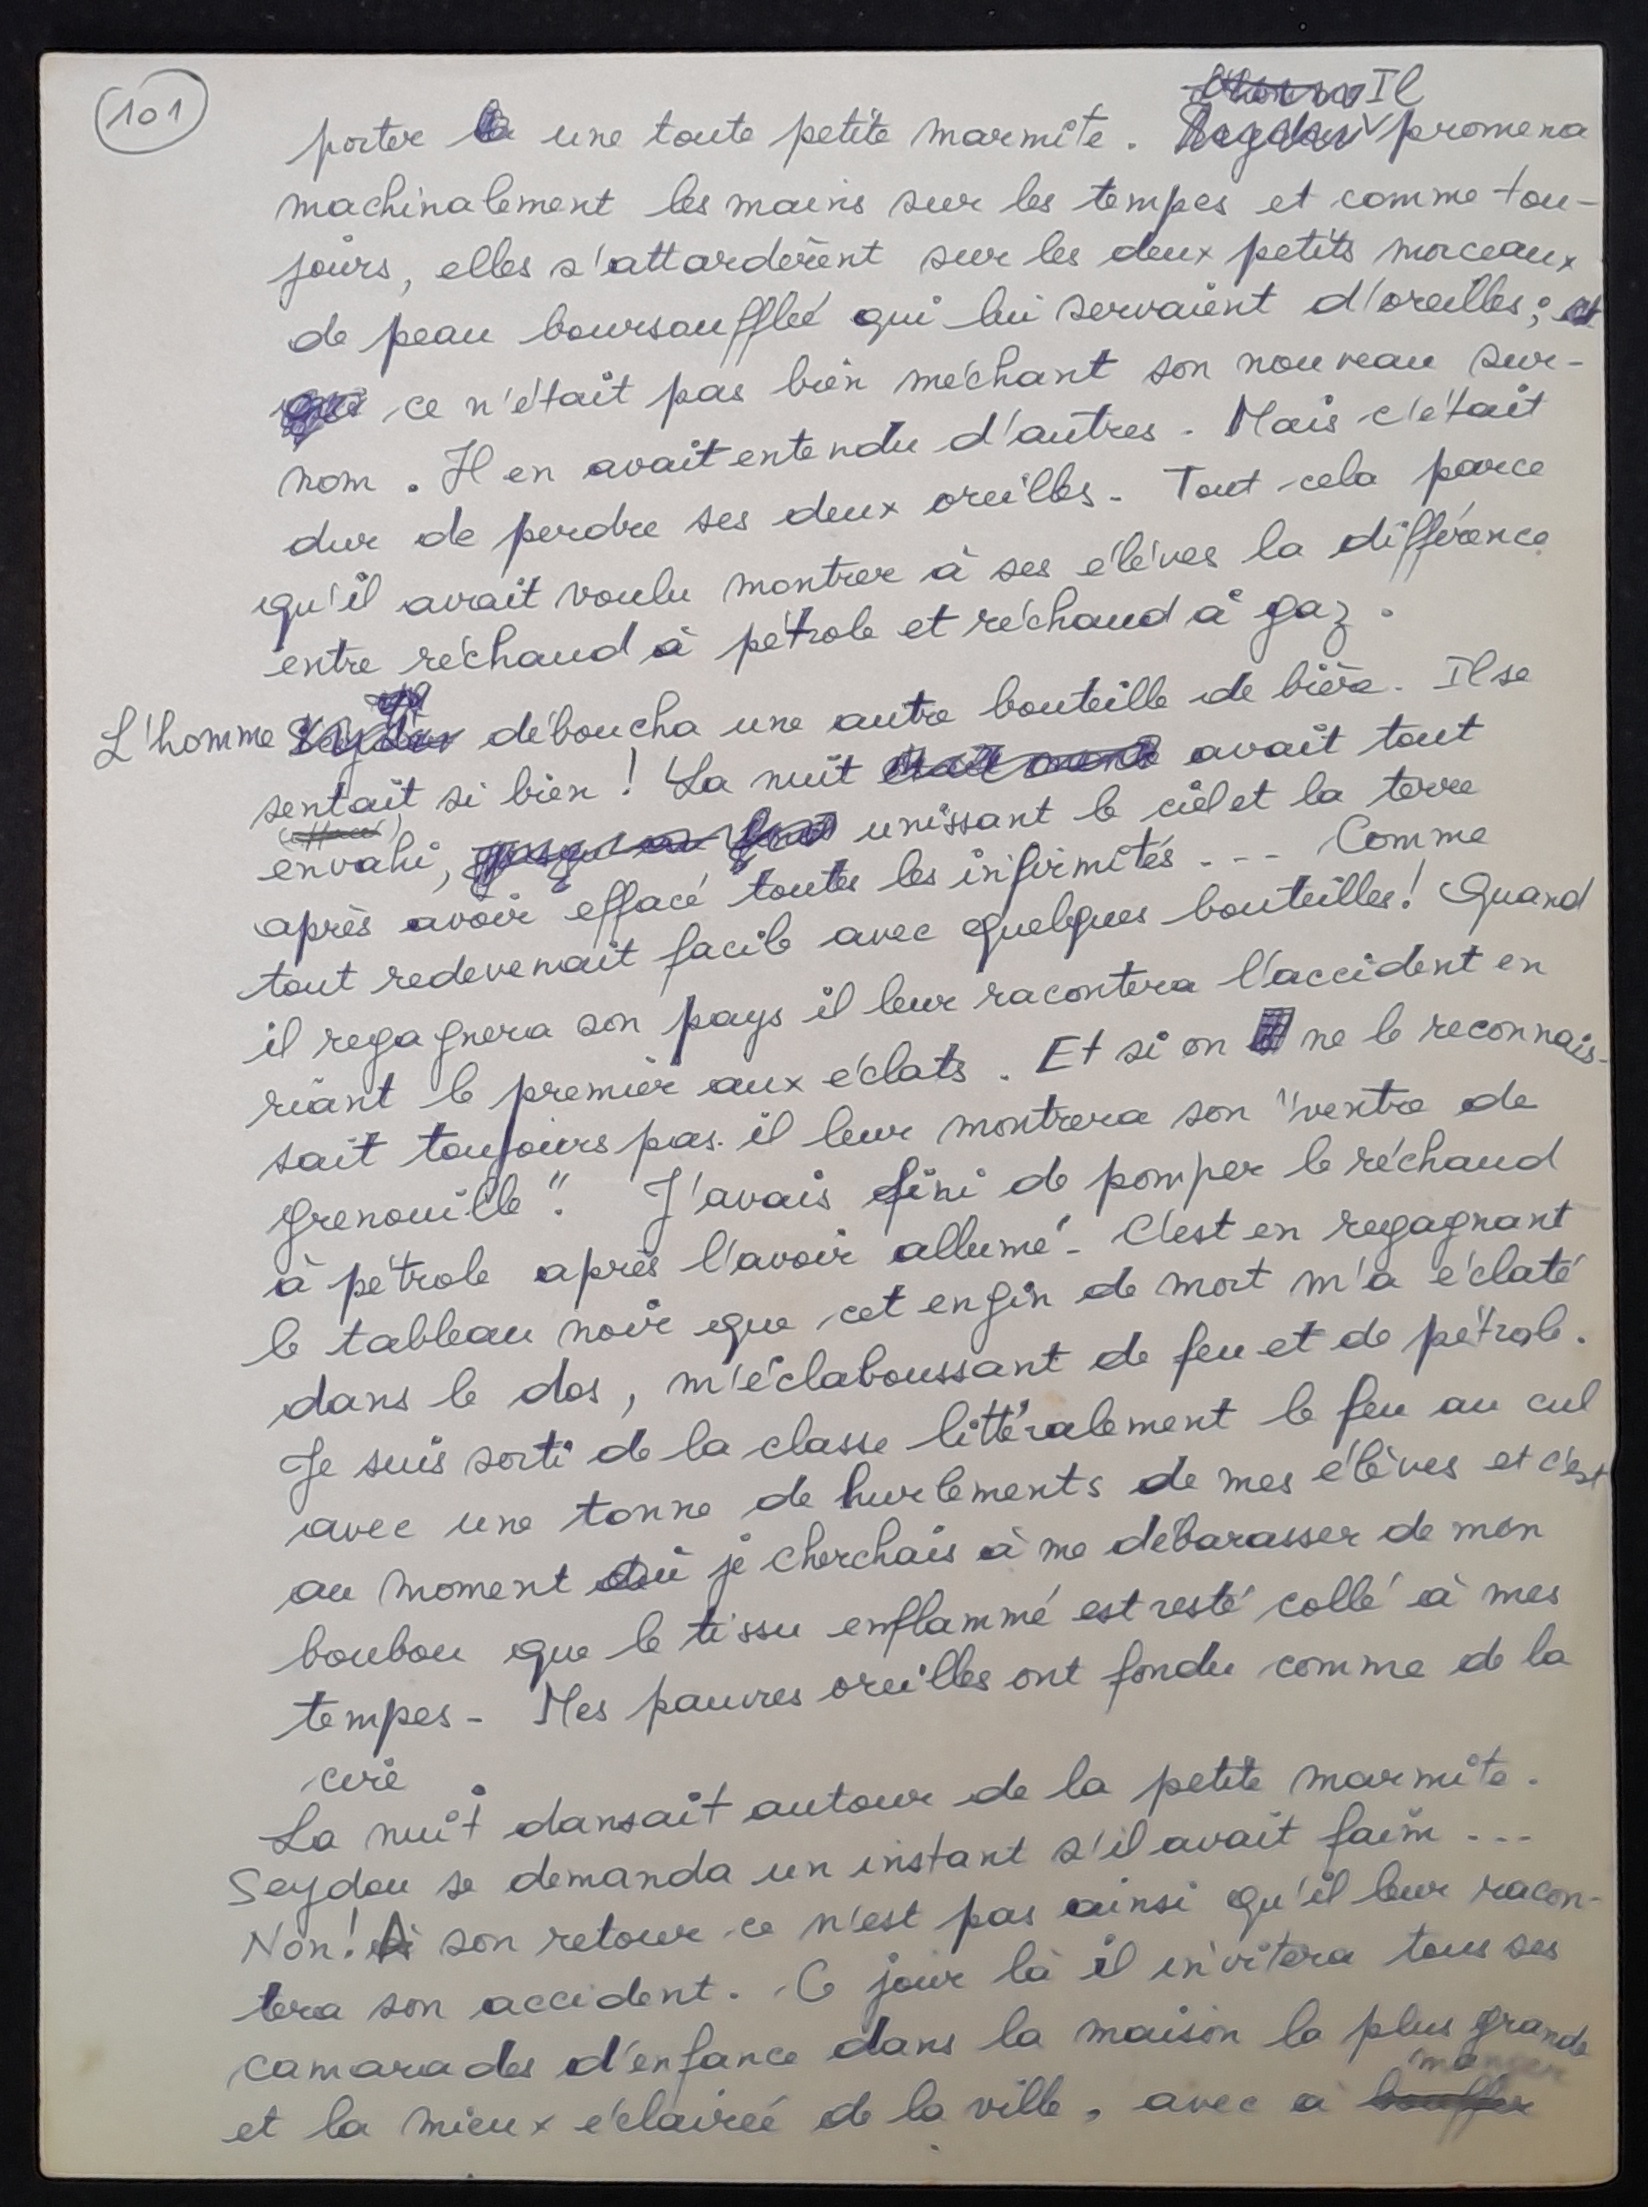 101
Il
porter une toute petite marmite. promena
machinalement les mains sur les tempes et comme tou-
jours, elles s'attardèrent sur les deux petits morceaux
de peau boursoufflée qui lui servaient d'oreilles;
ce n'était pas bien méchant son nouveau sur-
nom. Il en avait entendu d'autres. Mais c'était
dur de perdre ses deux oreilles. Tout cela parce
qu'il avait voulu montrer à ses élèves la différence
entre réchaud à pétrole et réchaud à gaz.
L'homme déboucha une autre bouteille de bière. Il se
sentait si bien! La nuit avait tout
envahi, unissant le ciel et la terre
après avoir effacé toutes les infirmités... Comme
tout redevenait facile avec quelques bouteilles! Quand
il regagnera son pays il leur racontera l'accident en
riant le premier aux éclats. Et si on ne le reconnais-
sait toujours pas. il leur montrera son "ventre de
grenouille". J'avais fini de pomper le réchaud
à pétrole après l'avoir allumé. C'est en regagnant
le tableau noir que cet engin de mort m'a éclaté
dans le dos, m'éclaboussant de feu et de pétrole.
Je suis sorti de la classe littéralement le feu au cul
avec une tonne de hurlements de mes élèves et c'est
au moment où je cherchais à me débarasser de mon
boubou que le tissu enflammé est resté collé à mes
tempes. Mes pauvres oreilles ont fondu comme de la
cire
La nuit dansait autour de la petite marmite.
Seydou se demanda un instant s'il avait faim...
Non! A son retour ce n'est pas ainsi qu'il leur racon-
tera son accident. Ce jour là il invitera tous ses
camarades d'enfance dans la maison la plus grande
manger
et la mieux éclairée de la ville, avec à bouffer